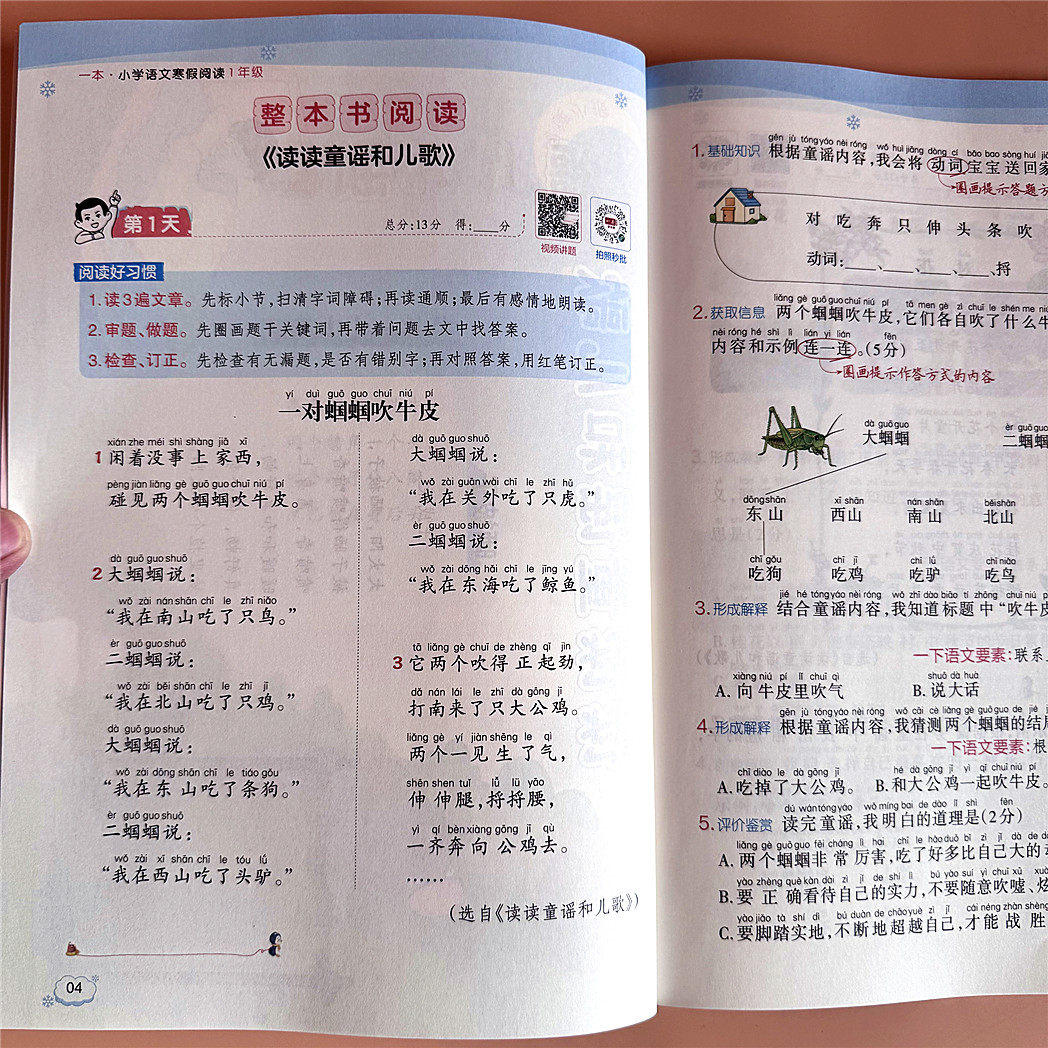 一本·小学语文寒假阅读1年级
整本书阅读
《读读童谣和儿歌》
第1天
总分:13分 得:____分
视频讲题
拍照秒批
阅读好习惯
1.读3遍文章。先标小节,扫清字词障碍;再读通顺;最后有感情地朗读。
2.审题、做题。先圈画题干关键词,再带着问题去文中找答案。
3.检查、订正。先检查有无漏题,是否有错别字;再对照答案,用红笔订正。
yí duì guō guo chuī niú pí
一对蝈蝈吹牛皮
xián zhe méi shì shàng jiā xī
1 闲着没事上家西,
pèng jiàn liǎng gè guō guo chuī niú pí
碰见两个蝈蝈吹牛皮。
dà guō guo shuō
2 大蝈蝈说:
wǒ zài nán shān chī le zhī niǎo
“我在南山吃了只鸟。”
èr guō guo shuō
二蝈蝈说:
wǒ zài běi shān chī le zhī jī
“我在北山吃了只鸡。”
dà guō guo shuō
大蝈蝈说:
wǒ zài dōng shān chī le tiáo gǒu
“我在东山吃了条狗。”
èr guō guo shuō
二蝈蝈说:
wǒ zài xī shān chī le tóu lǘ
“我在西山吃了头驴。”
dà guō guo shuō
大蝈蝈说:
wǒ zài guān wài chī le zhī hǔ
“我在关外吃了只虎。”
èr guō guo shuō
二蝈蝈说:
wǒ zài dōng hǎi chī le jīng yú
“我在东海吃了鲸鱼。”
tā liǎng gè chuī de zhèng qǐ jìn
3 它两个吹得正起劲,
dǎ nán lái le zhī dà gōng jī
打南来了只大公鸡。
liǎng gè yí jiàn shēng le qì
两个一见生了气,
shēn shen tuǐ lǚ lǚ yāo
伸伸腿,捋捋腰,
yì qí bèn xiàng gōng jī qù
一齐奔向公鸡去。
……
(选自《读读童谣和儿歌》)
04
gēn jù tóng yáo nèi róng wǒ huì jiāng dòng cí bǎo bao sòng huí
1.基础知识 根据童谣内容,我会将动词宝宝送回家
圈画提示答题方
对 吃 奔 只 伸 头 条 吹
动词:____、____、____、____、捋
liǎng gè guō guo chuī niú pí tā men gè zì chuī le shén me
2.获取信息 两个蝈蝈吹牛皮,它们各自吹了什么牛
nèi róng hé shì lì lián yi lián fēn
内容和示例连一连。(5分)
圈画提示作答方式的内容
dà guō guo èr guō guo
大蝈蝈 二蝈蝈
dōng shān xī shān nán shān běi shān
东山 西山 南山 北山
chī gǒu chī jī chī lǘ chī niǎo
吃狗 吃鸡 吃驴 吃鸟
jié hé tóng yáo nèi róng wǒ zhī dào biāo tí zhōng chuī niú pí
3.形成解释 结合童谣内容,我知道标题中“吹牛皮
一下语文要素:联系
xiàng niú pí lǐ chuī qì shuō dà huà
A.向牛皮里吹气 B.说大话
gēn jù tóng yáo nèi róng wǒ cāi cè liǎng gè guō guo de jié
4.形成解释 根据童谣内容,我猜测两个蝈蝈的结局
一下语文要素:根
chī diào le dà gōng jī hé dà gōng jī yì qǐ chuī niú pí
A.吃掉了大公鸡。 B.和大公鸡一起吹牛皮。
dú wán tóng yáo wǒ míng bai de dào lǐ shì fēn
5.评价鉴赏 读完童谣,我明白的道理是(2分)
liǎng gè guō guo fēi cháng lì hai chī le hǎo duō bǐ zì jǐ dà de
A.两个蝈蝈非常厉害,吃了好多比自己大的
yào zhèng què kàn dài zì jǐ de shí lì bú yào suí yì chuī xū
B.要正确看待自己的实力,不要随意吹嘘、炫
yào jiǎo tà shí dì bú duàn de chāo yuè zì jǐ cái néng zhàn shèng
C.要脚踏实地,不断地超越自己,才能战胜